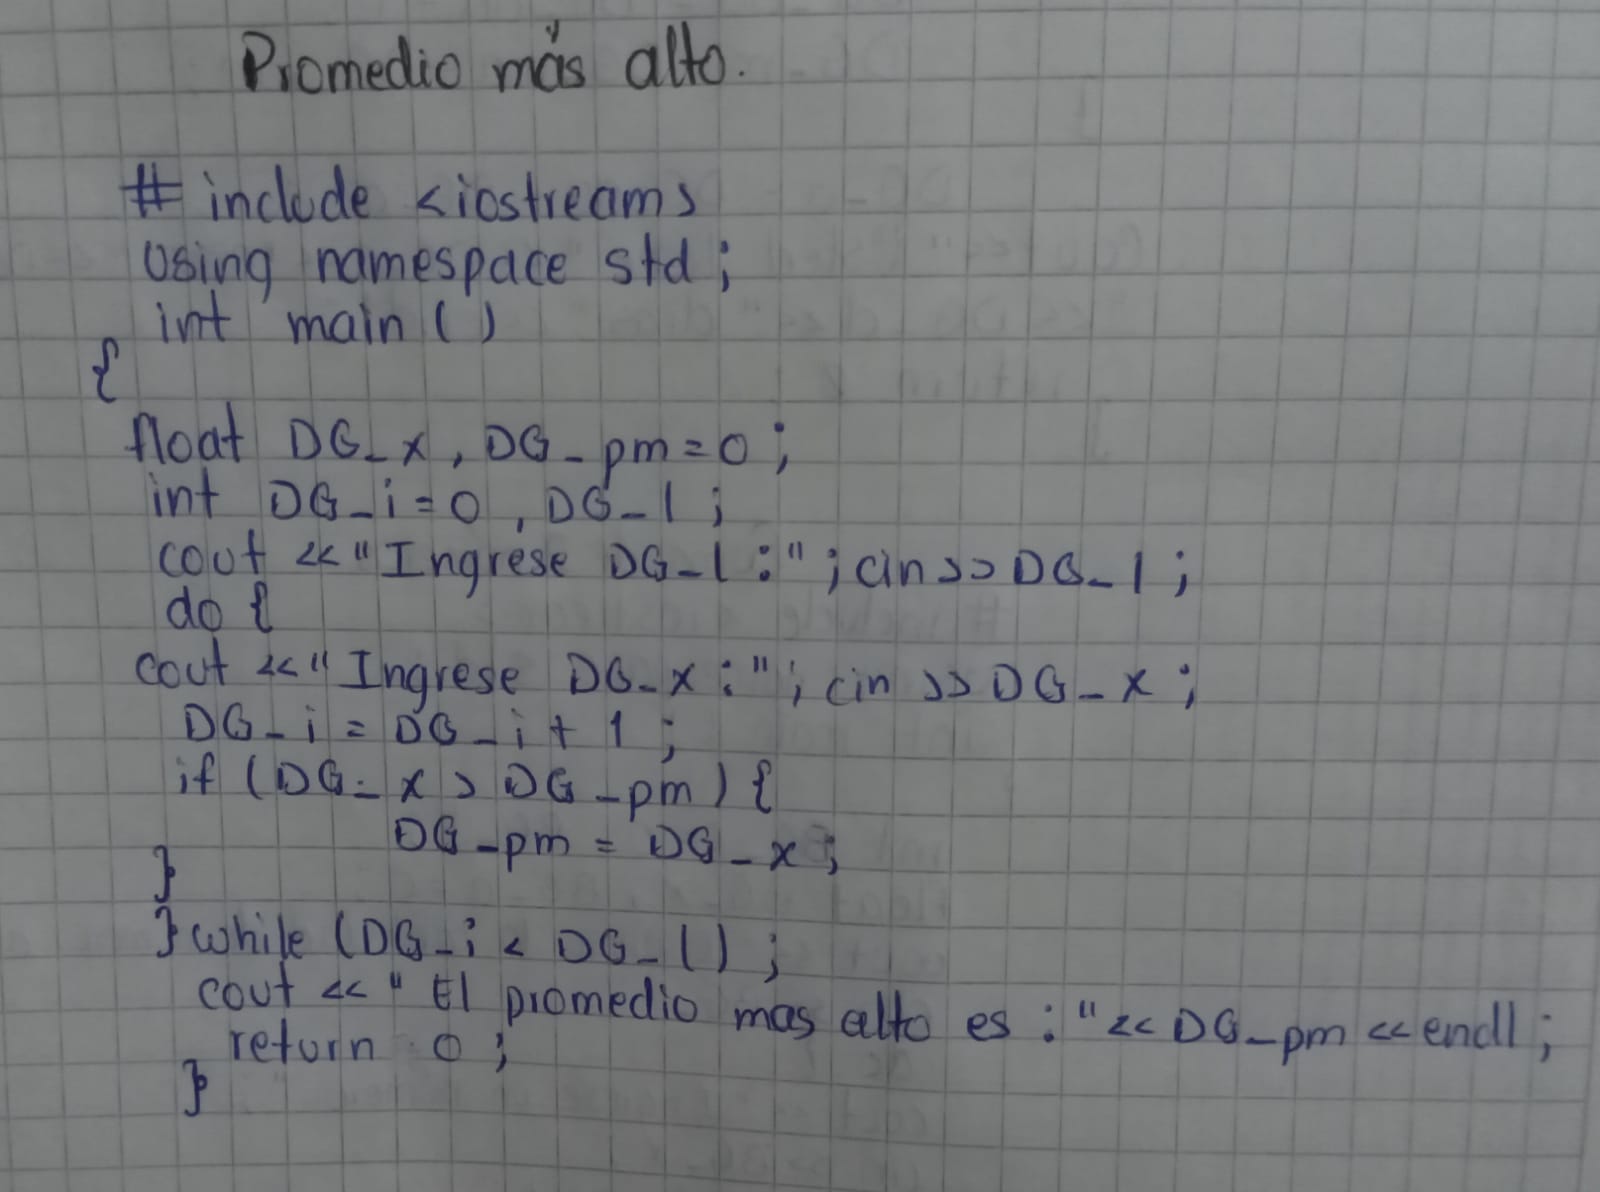 Promedio más alto.
# include <iostream>
Using namespace std ;
int main ( )
{
float DG_x , DG_pm = 0 ;
int DG_i = 0 , DG_l ;
cout << "Ingrese DG_l : " ; cin >> DG_l ;
do {
cout << " Ingrese DG_x : " ; cin >> DG_x ;
DG_i = DG_i + 1 ;
if ( DG_x > DG_pm ) {
DG_pm = DG_x ;
}
} while ( DG_i < DG_l ) ;
cout << " El promedio mas alto es : " << DG_pm << endl ;
return 0 ;
}